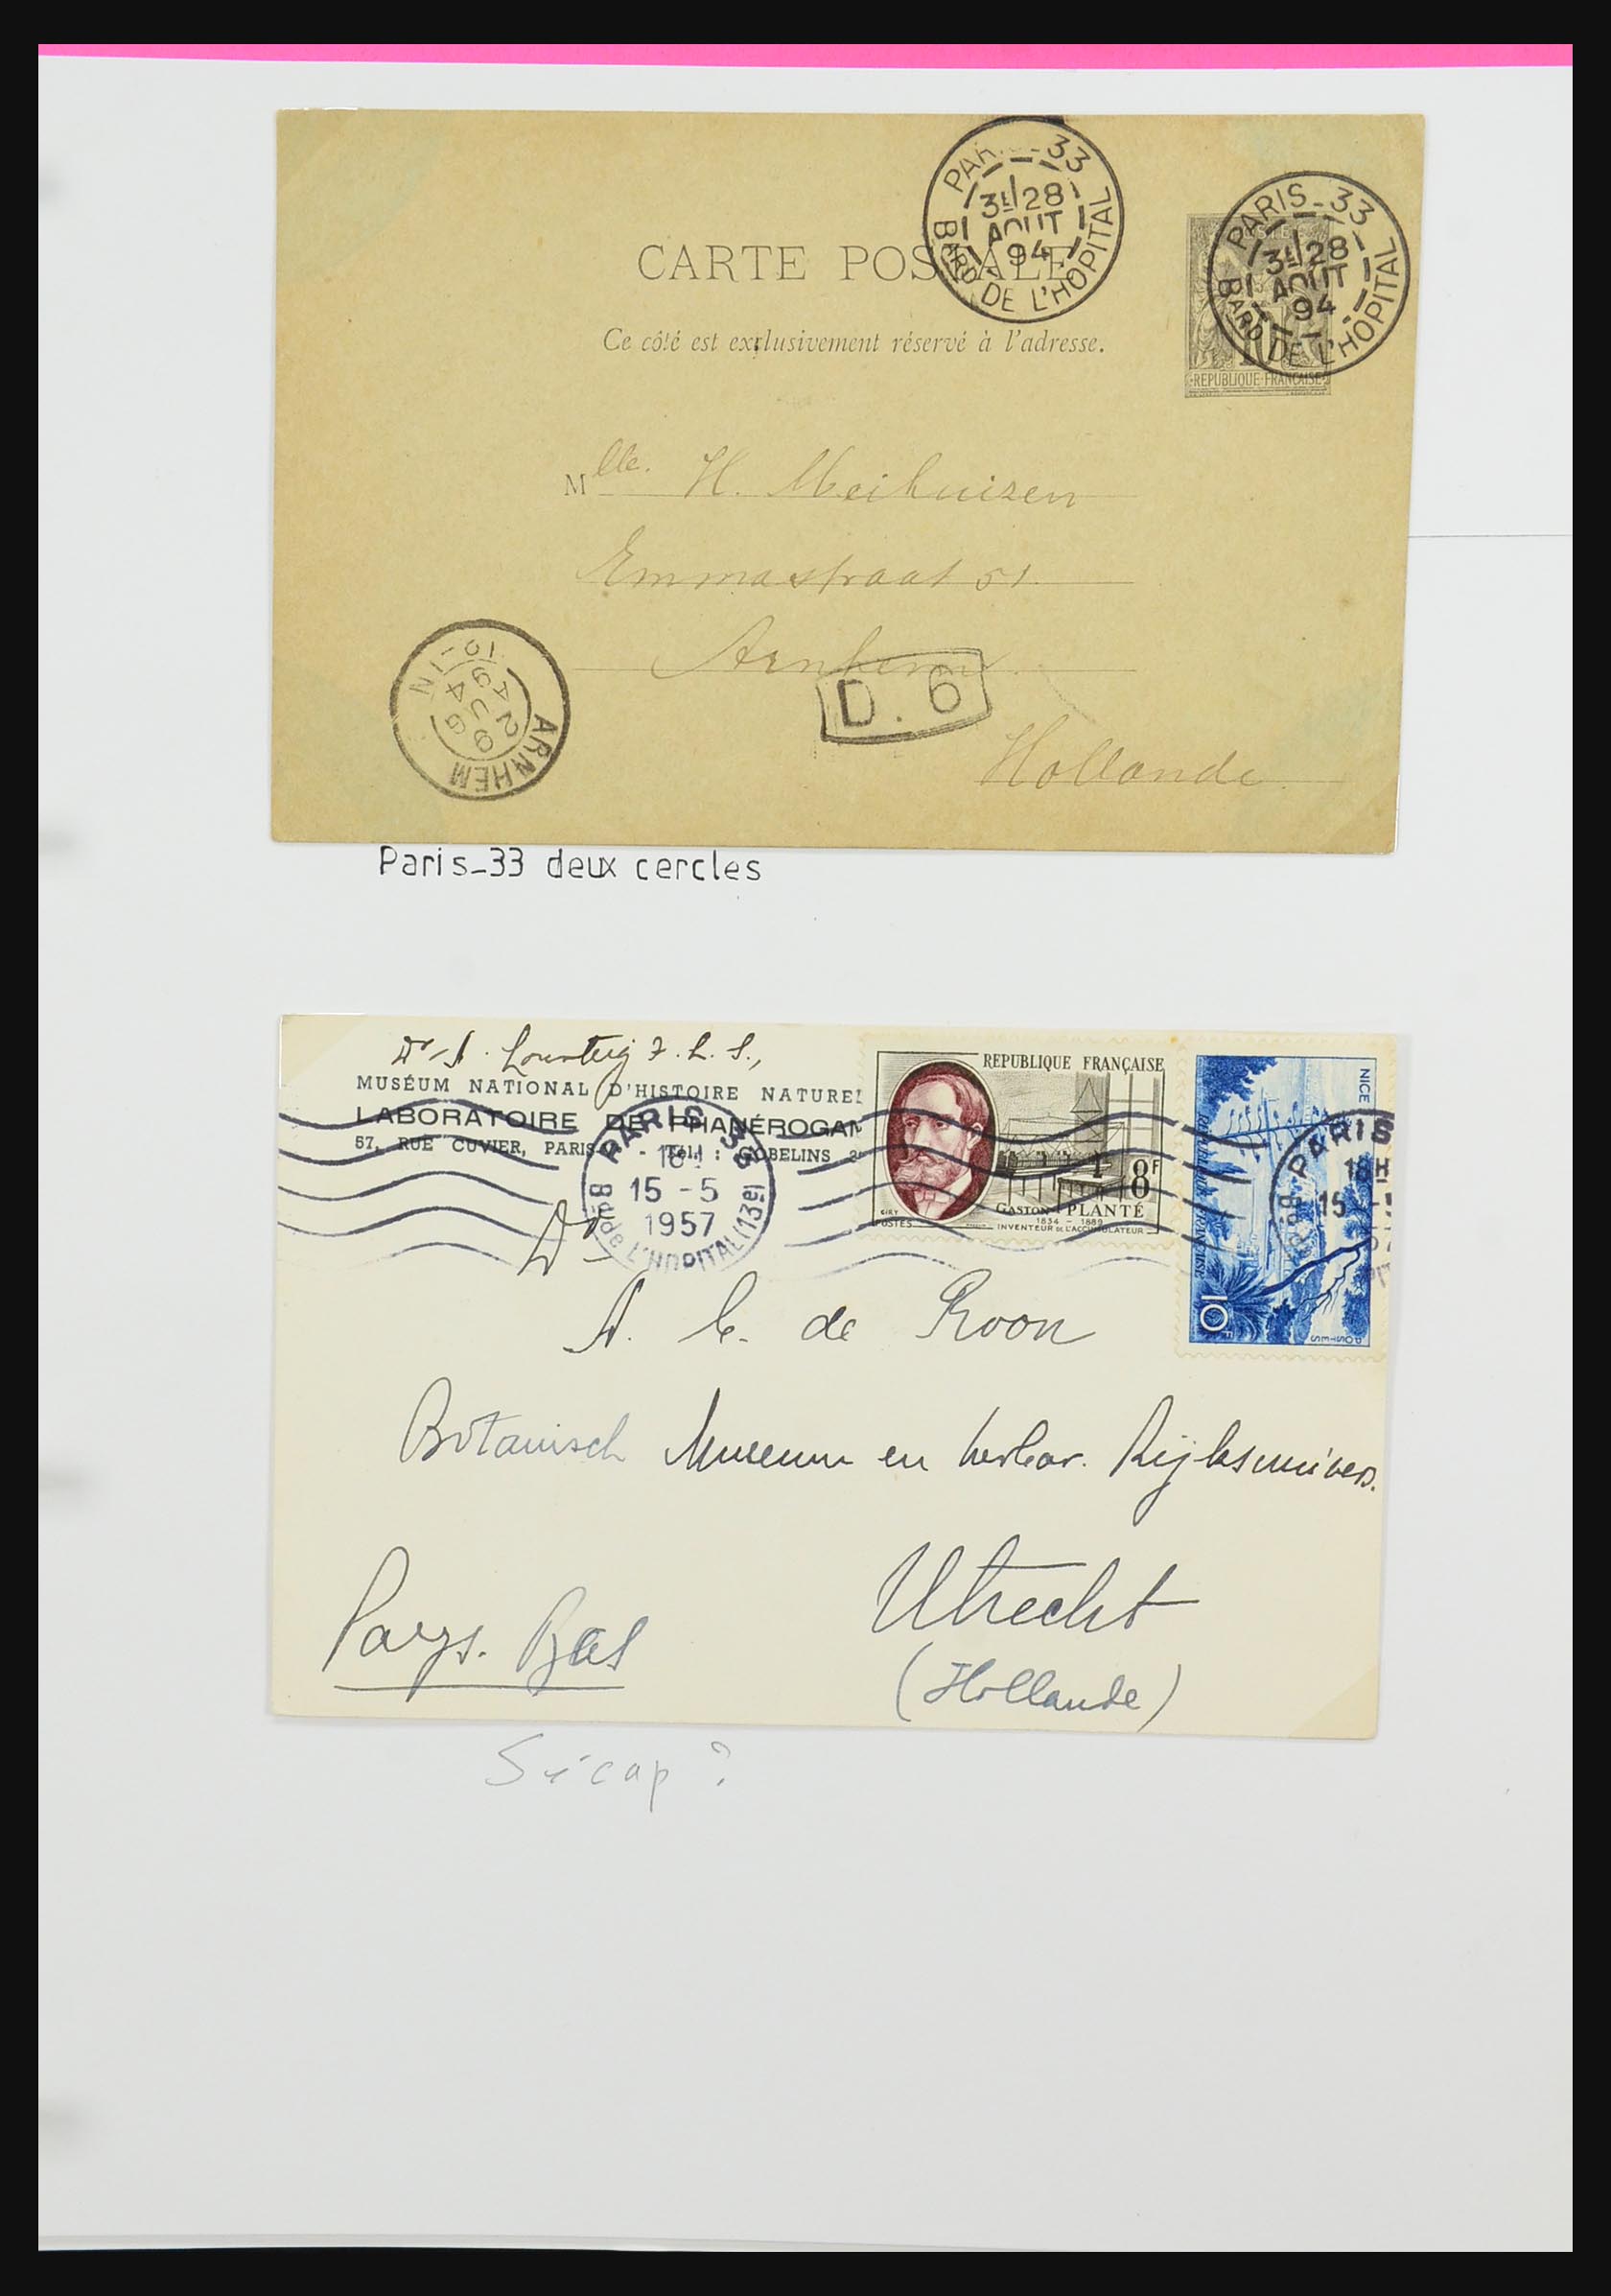 PARIS_33
3E/28
AOUT
94
Bard DE L'HOPITAL
PARIS_33
3E/28
AOUT
94
Bard DE L'HOPITAL
CARTE POSTALE
Ce côté est exclusivement réservé à l'adresse.
REPUBLIQUE FRANÇAISE
Mlle. H. Meihuizen
Emmastraat 51.
Arnhem
D. 6
Hollande.
ARNHEM
29
AUG
94
Paris_33 deux cercles
Dr A. Lourteig F. L. S.,
MUSÉUM NATIONAL D'HISTOIRE NATUREL
LABORATOIRE DE PHANÉROGAM
57, RUE CUVIER, PARIS - Tél. : GOBELINS
PARIS 33
18H
15 - 5
1957
Bd de L'HOPITAL (13e)
REPUBLIQUE FRANÇAISE
8F
GASTON PLANTÉ
1834 - 1889
INVENTEUR DE L'ACCUMULATEUR
POSTES
NICE
RÉPUBLIQUE FRANÇAISE
10F
POSTES
PARIS
18H
15 -
Dr
A. C. de Roon
Botanisch Museum en herbar. Rijksunivers.
Utrecht
Pays-Bas
(Hollande)
Sécap ?